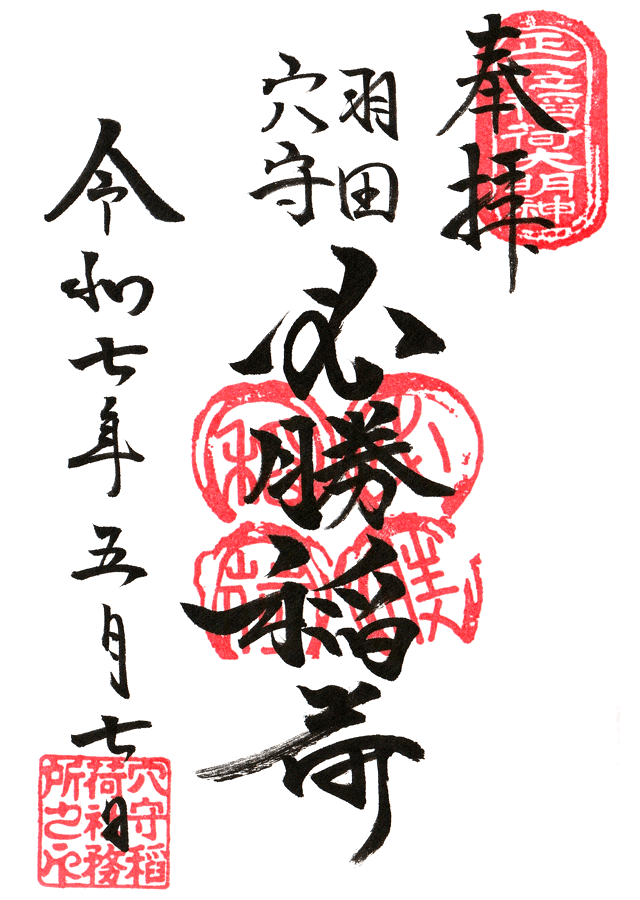 奉拝
正一位稲荷大明神
羽田
穴守
必勝稲荷
令和七年五月七日
穴守稲
荷社務
所之印